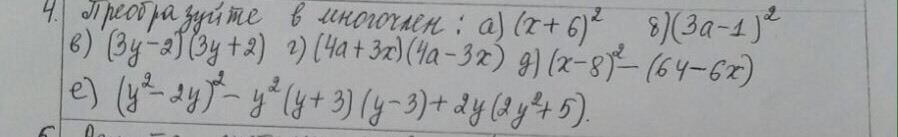 4. Преобразуйте в многочлен: а) (x+6)² б) (3a-1)²
в) (3y-2)(3y+2) г) (4a+3x)(4a-3x) д) (x-8)²-(64-6x)
е) (y²-2y)²-y²(y+3)(y-3)+2y(2y²+5).